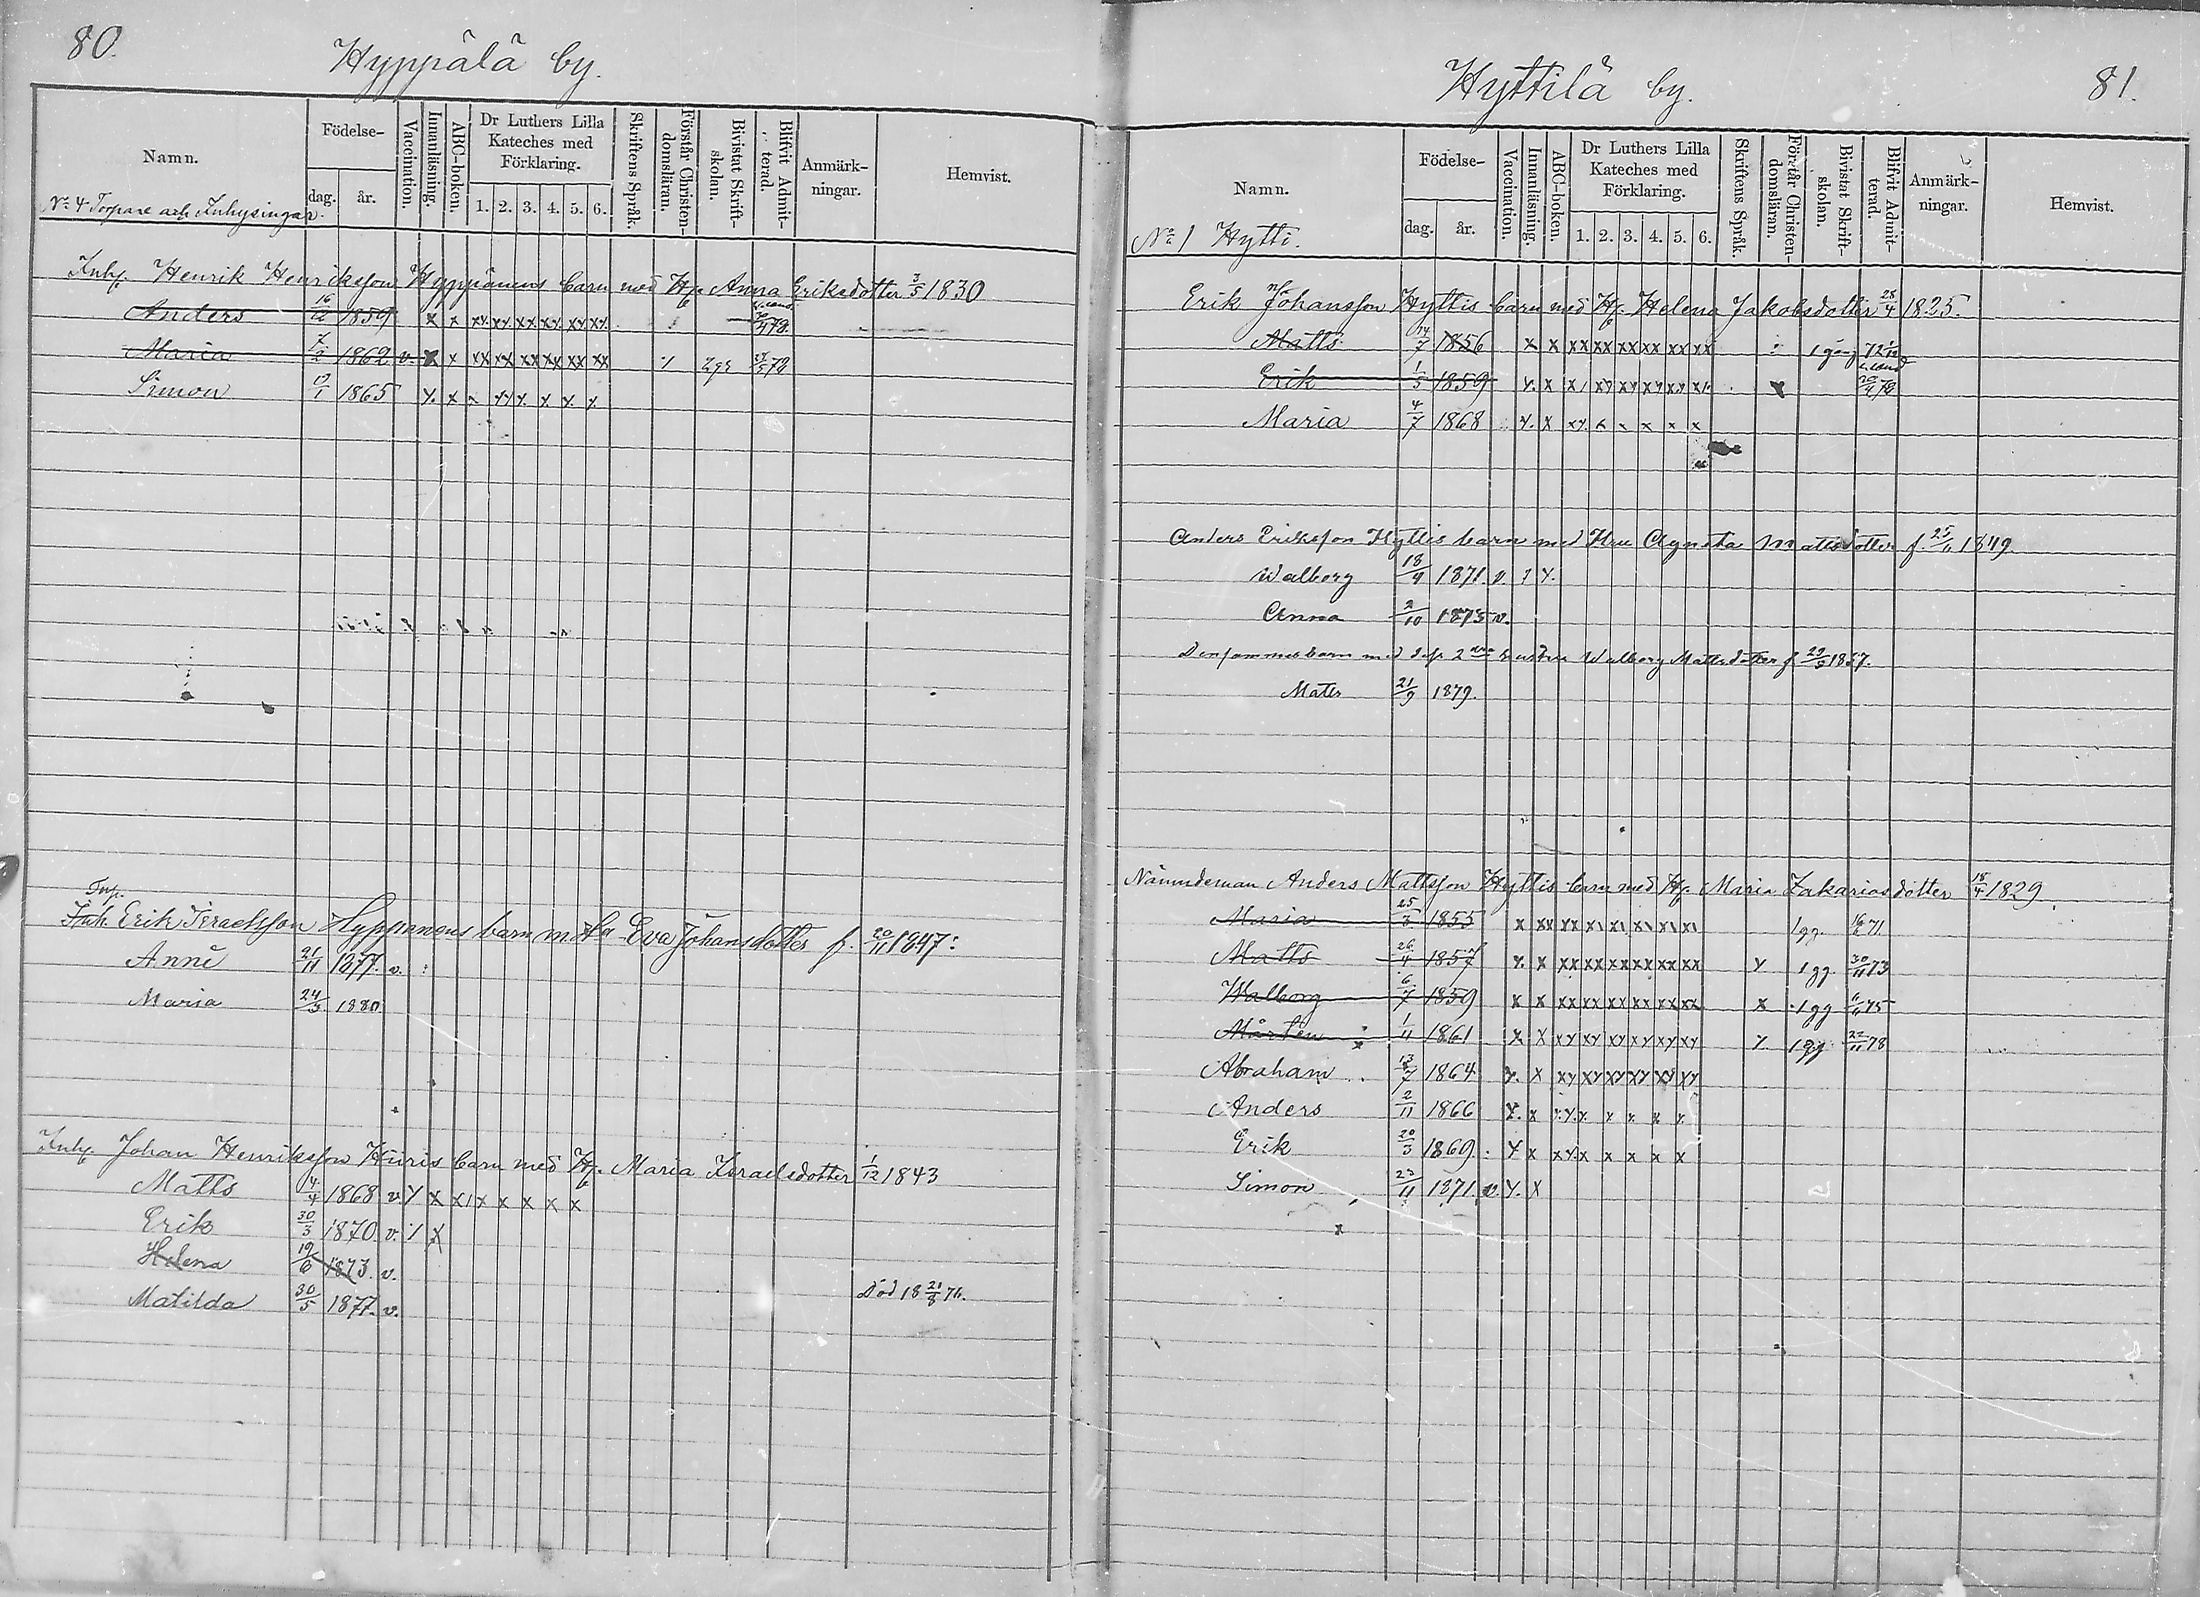 80.
Hyppälä by.
Namn.
Födelse-
dag.
år.
Vaccination.
Innanläsning.
ABC-boken.
Dr Luthers Lilla
Kateches med
Förklaring.
1. 2. 3. 4. 5. 6.
Skriftens Språk.
Förstår Christen-
domsläran.
Bivistat Skrift-
skolan.
Blifvit Admit-
terad.
Anmärk-
ningar.
Hemvist.
No 4 Torpare och Inhysingar.
Inh. Henrik Henriksson Hyppänens barn med H. Anna Eriksdotter 3/5 1830
Anders 16/12 1859 x x xx xx xx xx xx xx
Maria 7/2 1862 v. x x xx xx xx xx xx xx 2 gr
Simon 1865 x x
Torp.
Inh. Erik Israelsson Hyppönens barn m Hu Eva Johansdotter f. 20/11 1847.
Anna 21/11 1877. v.
Maria 24/3 1880
Inh. Johan Henriksson Huris barn med H. Maria Israelsdotter 1/12 1843
Matts 4/4 1868 v. x x x x x x x x
Erik 30/3 1870. v. x
Helena 19/6 1873. v.
död 18 21/8 76.
Matilda 30/5 1877. v.
Hyttilä by.
81.
Namn.
Födelse-
dag.
år.
Vaccination.
Innanläsning.
ABC-boken.
Dr Luthers Lilla
Kateches med
Förklaring.
1. 2. 3. 4. 5. 6.
Skriftens Språk.
Förstår Christen-
domsläran.
Bivistat Skrift-
skolan.
Blifvit Admit-
terad.
Anmärk-
ningar.
Hemvist.
No 1 Hytti.
Erik Johansson Hyttis barn med H. Helena Jakobsdotter 28/4 1825.
Matts 14/7 1856 x x xx xx xx xx xx xx 1 gång
Erik 1/5 1859 x. x x
Maria 4/7 1868 x. x xx. x x x x x
Anders Eriksson Hyttis barn med Hru Agneta Mattsdotter f. 25/11 1849
Walborg 18/9 1871. v.
Anna 2/10 1875 v.
Densammes barn med dess 2dra hustru Walborg Mattsdotter f. 1857.
Matts 21/9 1879.
Nämndeman Anders Mattsson Hyttis barn med H. Maria Zakariasdotter 18/4 1829.
Maria 25/3 1855 x xx xx xx xx xx xx 1 gg. 71.
Matts 26/4 1857 x. x xx xx xx xx xx xx x 1 gg. 30/11 73
Walborg 6/7 1859 x x xx xx xx xx xx xx x 1 gg 75
Mårten 1/11 1861 x x xx xx xx xx xx xx x 1 gg 78
Abraham 1864 x. x xx xx xx xx xx xx
Anders 2/11 1866 x. x x x x x
Erik 20/3 1869. x x xx. x x x x x
Simon 23/11 1871. v. x. x